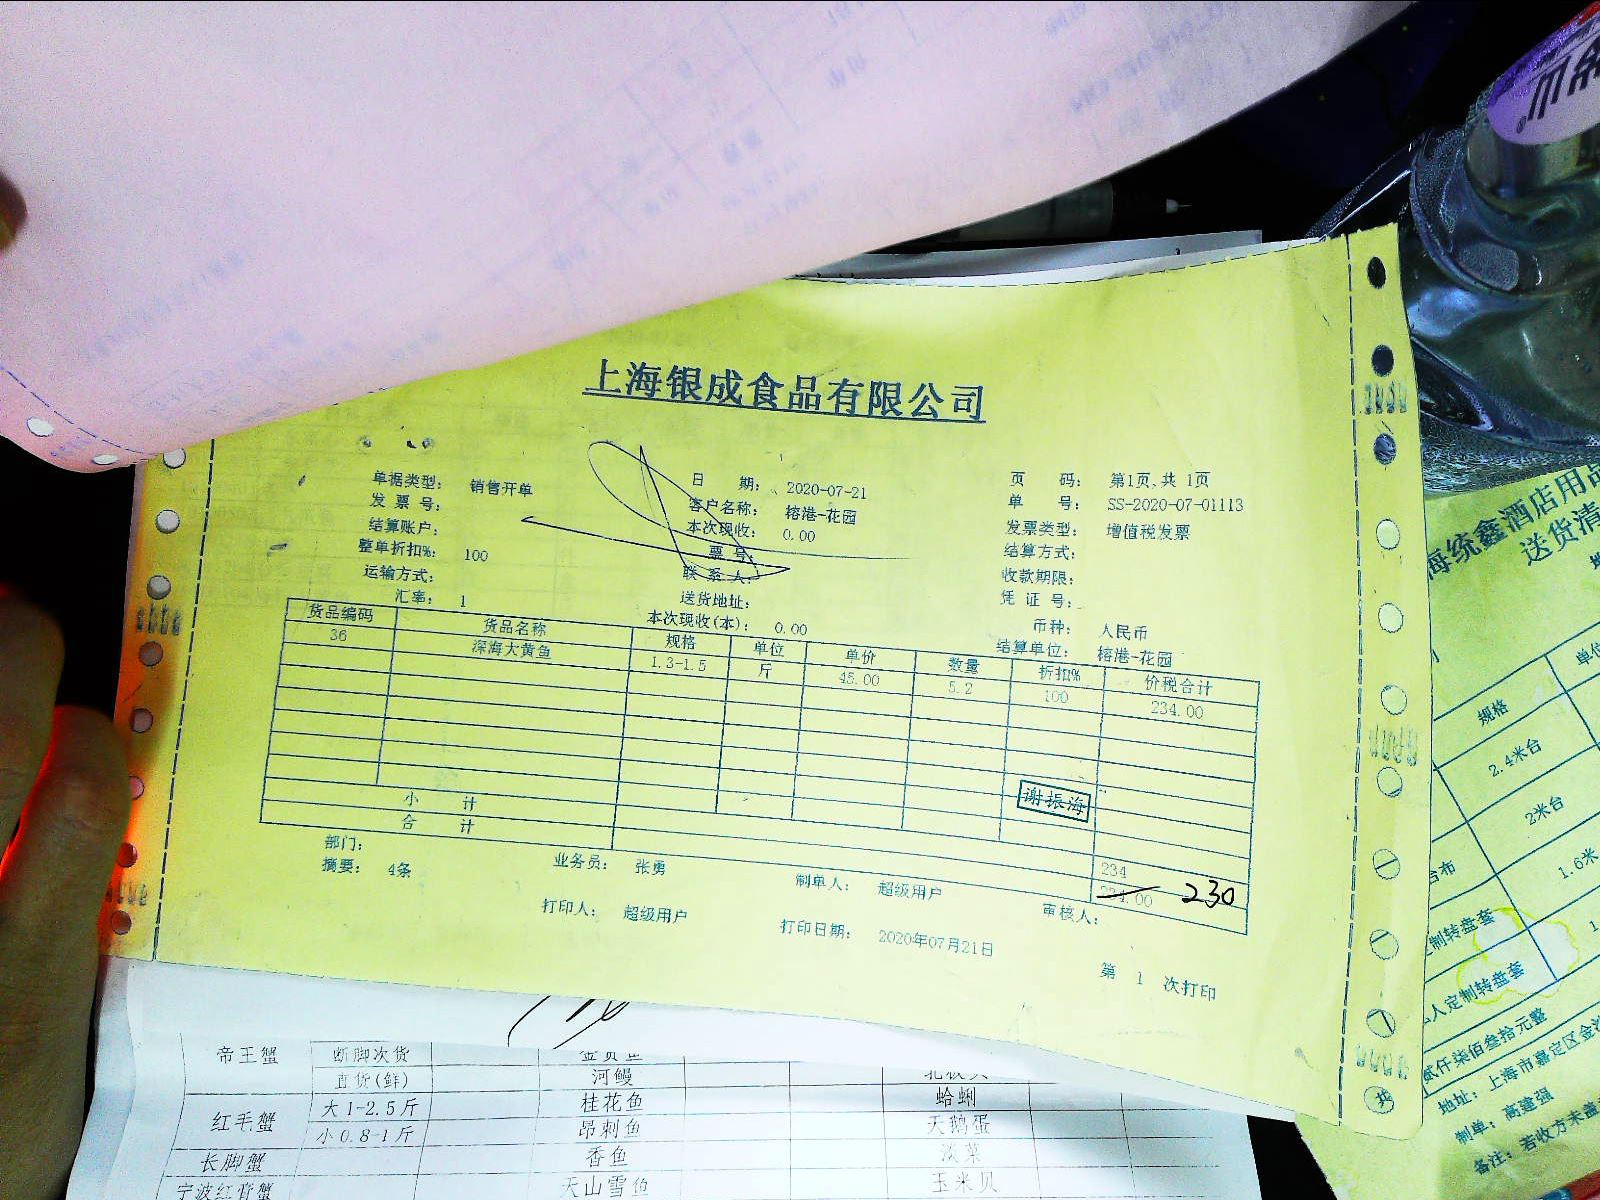 上海银成食品有限公司
单据类型: 销售开单 日 期: 2020-07-21 页 码: 第1页,共 1页
发 票 号: 客户名称: 榕港-花园 单 号: SS-2020-07-01113
结算账户: 本次现收: 0.00 发票类型: 增值税发票
整单折扣%: 100 票 号: 结算方式:
运输方式: 联 系 人: 收款期限:
汇率: 1 送货地址: 凭 证 号:
本次现收(本): 0.00 币种: 人民币
结算单位: 榕港-花园
货品编码 货品名称 规格 单位 单价 数量 折扣% 价税合计
36 深海大黄鱼 1.3-1.5 斤 45.00 5.2 100 234.00
谢振海
小 计 234
合 计 234.00 230
部门: 业务员: 张勇 制单人: 超级用户 审核人:
摘要: 4条
打印人: 超级用户 打印日期: 2020年07月21日
第 1 次打印
共
帝王蟹 断脚次货
直货(鲜) 河鳗
红毛蟹 大1-2.5斤 桂花鱼 蛤蜊
小0.8-1斤 昂刺鱼 天鹅蛋
长脚蟹 香鱼 淡菜
宁波红膏蟹 天山雪鱼 玉米贝
海统鑫酒店用品
送货清
规格 单位
2.4米台
2米台
台布 1.6米
制转盘套
人定制转盘套
贰仟柒佰叁拾元整
地址: 上海市嘉定区金沙
制单: 高建强
备注: 若收方未盖